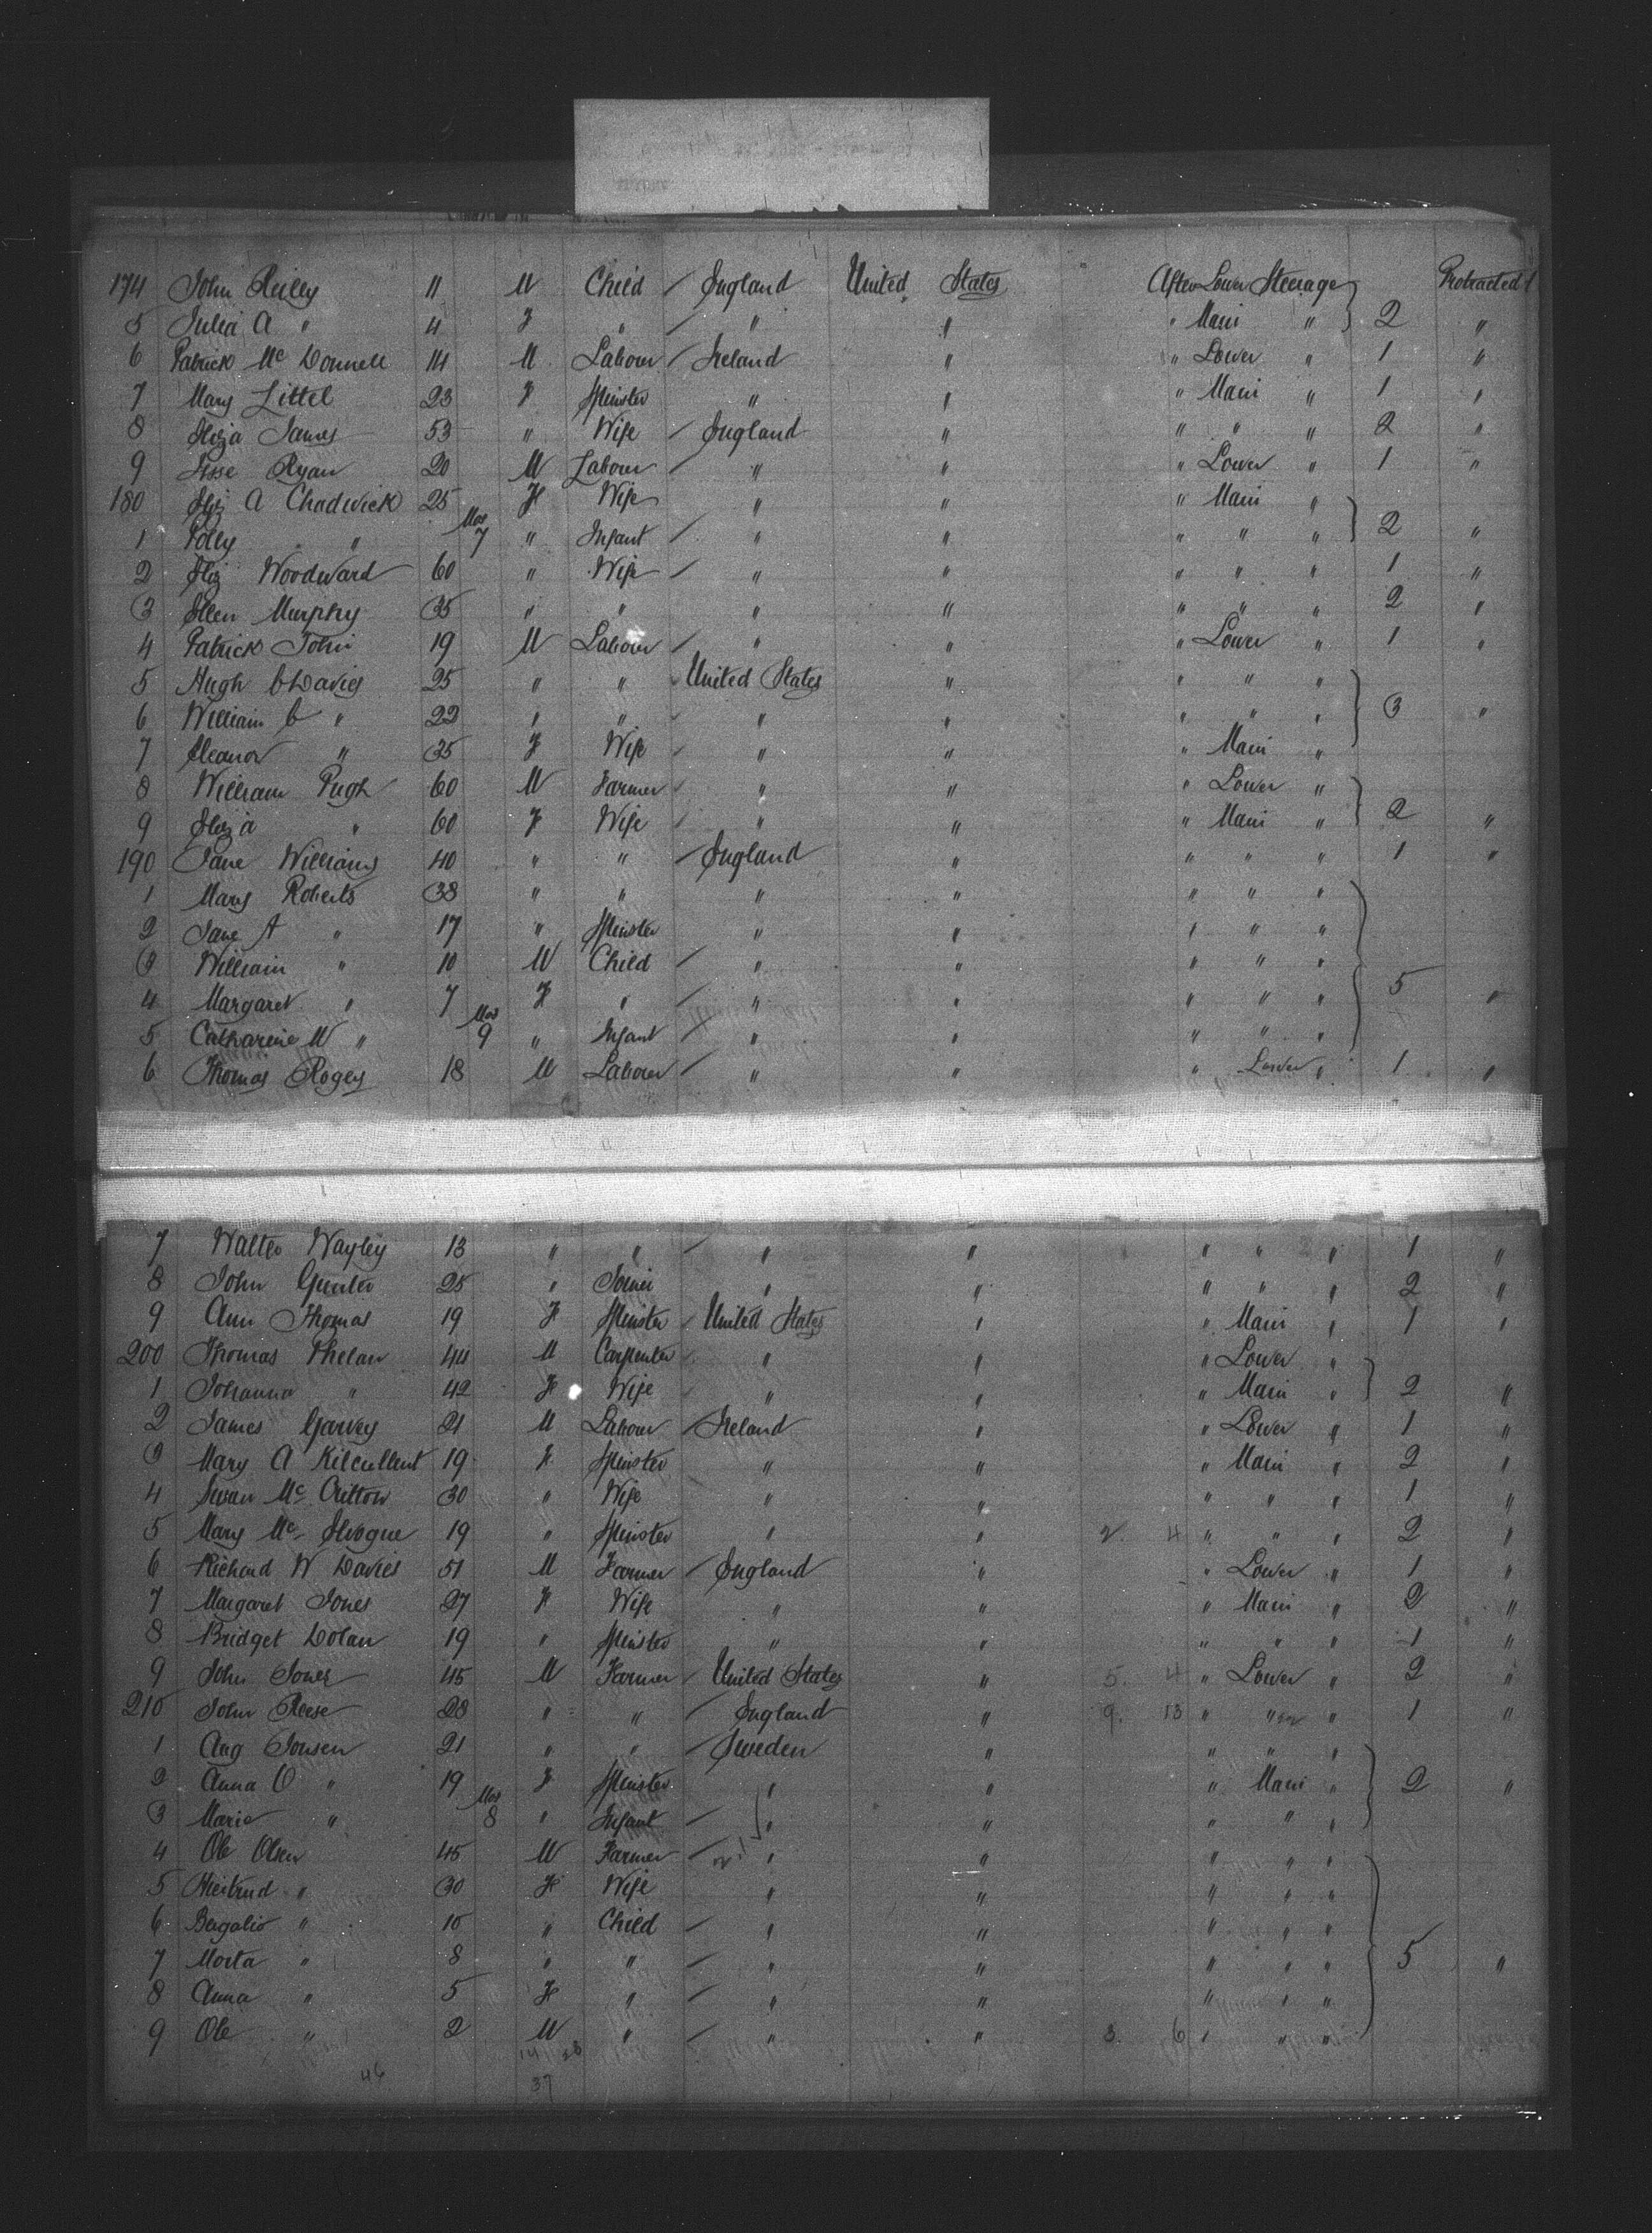 174 John Reiley 11 M Child / England United States After Lower Steerage Protracted
5 Julia A " 4 F " / " " " Main " 2 "
6 Patrick Mc Donnell 14 M Labour / Ireland " " Lower " 1 "
7 Mary Littel 23 F Spinster " " " Main " 1 "
8 Eliza James 53 " Wife / England " " " " 2 "
9 Jesse Ryan 20 M Labour / " " " Lower " 1 "
180 Eliz A Chadwick 25 F Wife " " " Main "
1 Polly " Mos 7 " Infant / " " " " " 2 "
2 Eliz Woodward 60 " Wife / " " " " " 1 "
3 Ellen Murphy 35 " " " " " " " 2 "
4 Patrick John 19 M Labour / " " " Lower " 1 "
5 Hugh C Davies 25 " " United States " " " "
6 William C " 22 " " " " " " " 3 "
7 Eleanor " 35 F Wife " " " Main "
8 William Pugh 60 M Farmer " " " Lower "
9 Eliza " 60 F Wife / " " " Main " 2 "
190 Jane Williams 40 " " / England " " " " 1 "
1 Mary Roberts 38 " " " " " " "
2 Jane A " 17 " Spinster " " " " "
3 William " 10 M Child / " " " " "
4 Margaret " 7 F " / " " " " " 5 "
5 Catharine M " Mos 9 " Infant / " " " " "
6 Thomas Rogers 18 M Labour / " " " Lower " 1 "
7 Walter Wayley 13 " " / " " " " " 1 "
8 John Gunter 25 " Joiner " " " " " 2 "
9 Ann Thomas 19 F Spinster United States " " Main " 1 "
200 Thomas Phelan 44 M Carpenter " " " Lower "
1 Johanna " 42 F Wife " " " Main " 2 "
2 James Garvey 21 M Labour / Ireland " " Lower " 1 "
3 Mary A Kilcullent 19 F Spinster " " " Main " 2 "
4 Susan Mc Critton 30 " Wife " " " " " 1 "
5 Mary Mc 19 " Spinster " " 2 4 " " " 2 "
6 Richard W Davies 51 M Farmer / England " " Lower " 1 "
7 Margaret Jones 27 F Wife " " " Main " 2 "
8 Bridget Dolan 19 " Spinster " " " " " 1 "
9 John Jones 45 M Farmer / United States " 5. 4 " Lower " 2 "
210 John Reese 28 " " / England " 9. 13 " " " 1 "
1 Aug Jonsen 21 " " / Sweden " " " "
2 Anna O " 19 F Spinster " " " Main " 2 "
3 Marie " Mos 8 " Infant / " " " " "
4 Ole Olsen 45 M Farmer / " " " " "
5 " 30 F Wife " " " " "
6 " 10 " Child / " " " " "
7 Morta " 8 " " / " " " " " 5 "
8 Anna " 5 F " / " " " " "
9 Ole " 2 M " / " " 3. 6 " " "
46 37